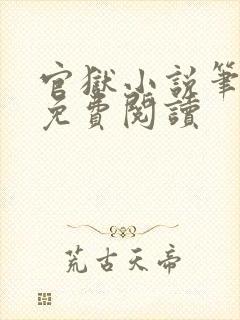 官獄小說筆
免費閱讀
荒古天帝